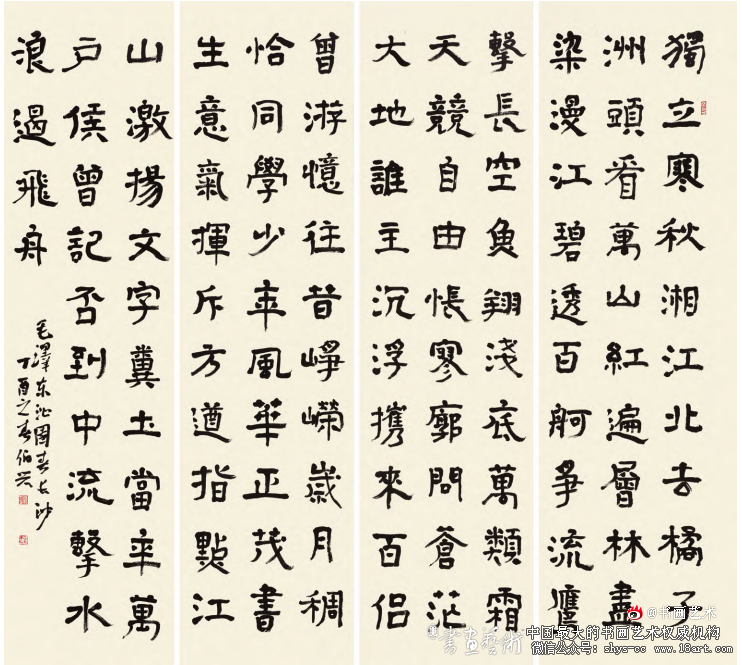 獨立寒秋湘江北去橘子
洲頭看萬山紅遍層林盡
染漫江碧透百舸爭流鷹
擊長空魚翔淺底萬類霜
天競自由悵寥廓問蒼茫
大地誰主沉浮攜來百侶
曾游憶往昔崢嶸歲月稠
恰同學少年風華正茂書
生意氣揮斥方遒指點江
山激揚文字糞土當年萬
戶侯曾記否到中流擊水
浪遏飛舟
毛澤东沁園春长沙
丁酉之春伯兴
@书画艺术
書画藝術
中国最大的书画艺术权威机构
微信公众号: shys-cc www.18art.com